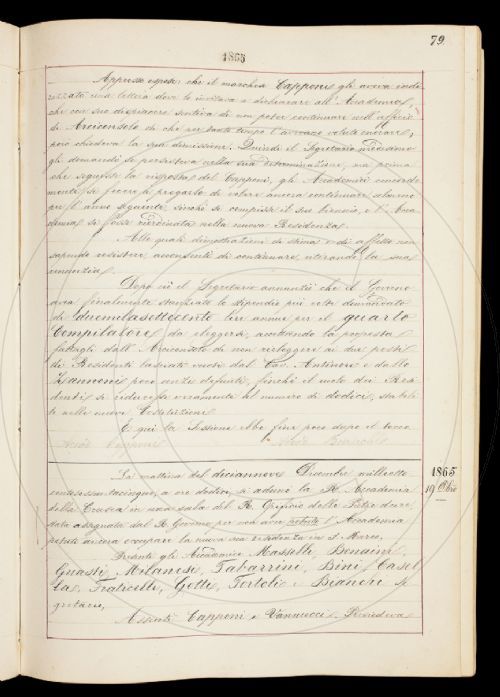 79.
1865
Appresso espose che il marchese Capponi gli aveva indi-
rizzato una lettera dove lo invitava a dichiarare all'Accademia,
che con suo dispiacere sentiva di non poter continuare nell'ufficio
di Arciconsolo di che per tanto tempo l'avevano voluto onorare;
però chiedeva la sua dimissione. Quindi il Segretario medesimo
gli domandò se persisteva nella sua determinazione, ma prima
che seguisse la risposta del Capponi, gli Accademici concorde-
mente si fecero a pregarlo di volere ancora continuare almeno
per l'anno seguente, finchè si compisse il suo biennio, e l'Acca-
demia si fosse incamminata nella nuova Residenza.
Alle quali dimostrazioni di stima e di affetto non
sapendo resistere, acconsentì di continuare, ritirando la sua
rinunzia.
Dopo ciò il Segretario annunziò che il Governo
avea finalmente stanziato lo stipendio più volte domandato
di duemilasettecento lire annue per il quarto
Compilatore da eleggersi, accettando la proposta
fattagli dall'Arciconsolo di non rieleggere ai due posti
di Residenti lasciati vuoti dal Cav. Antinori e dallo
Zannoni poco anzi defunti, finchè il moto dei Resi-
denti si riducesse veramente al numero di dodici, stabili-
to nelle nuove Costituzioni.
E qui la Sessione ebbe fine poco dopo il tocco.
1865
19 Xbre
La mattina del deciannove Dicembre milleotto-
centosessantacinque, a ore dodici, si adunò la R. Accademia
della Crusca in una sala del R. Opificio delle Pietre dure,
stata assegnata dal R. Governo per non aver potuto l'Accademia
potuto ancora occupare la nuova sua residenza in S. Marco.
Presenti gli Accademici Masselli, Bonaini,
Guasti, Milanesi, Tabarrini, Bini, Casel-
la, Fraticelli, Gotti, Tortoli e Bianchi Se-
gretario,
Assenti Capponi e Vannucci. Presedeva